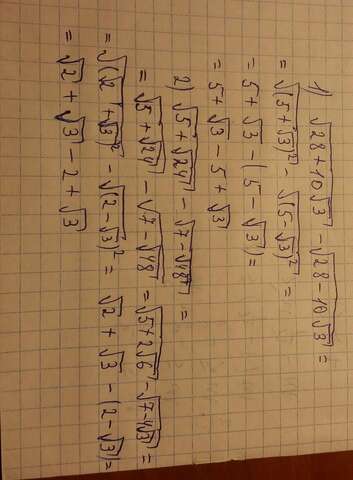 1) √28+10√3 - √28-10√3 =
= √(5+√3)² - √(5-√3)² =
= 5+√3 - (5-√3) =
= 5+√3 - 5+√3
2) √5+√24 - √7-√48 =
= √5+√24 - √7-√48 = √5+2√6 - √7-4√3 =
= √(√2+√3)² - √(2-√3)² = √2+√3 - (2-√3) =
= √2+√3-2+√3